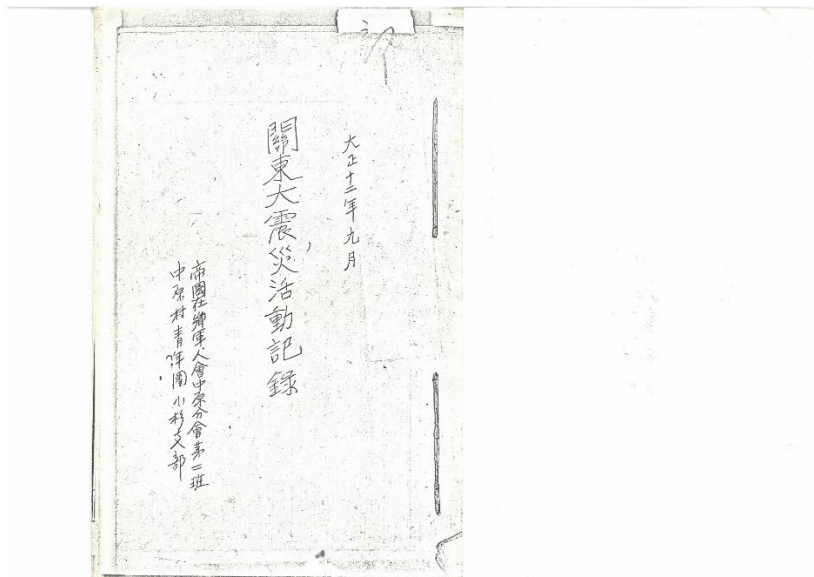 部
大正十二年九月
關東大震災活動記錄
帝國在鄕軍人會中原分會第二班
中原村青年團小杉支部